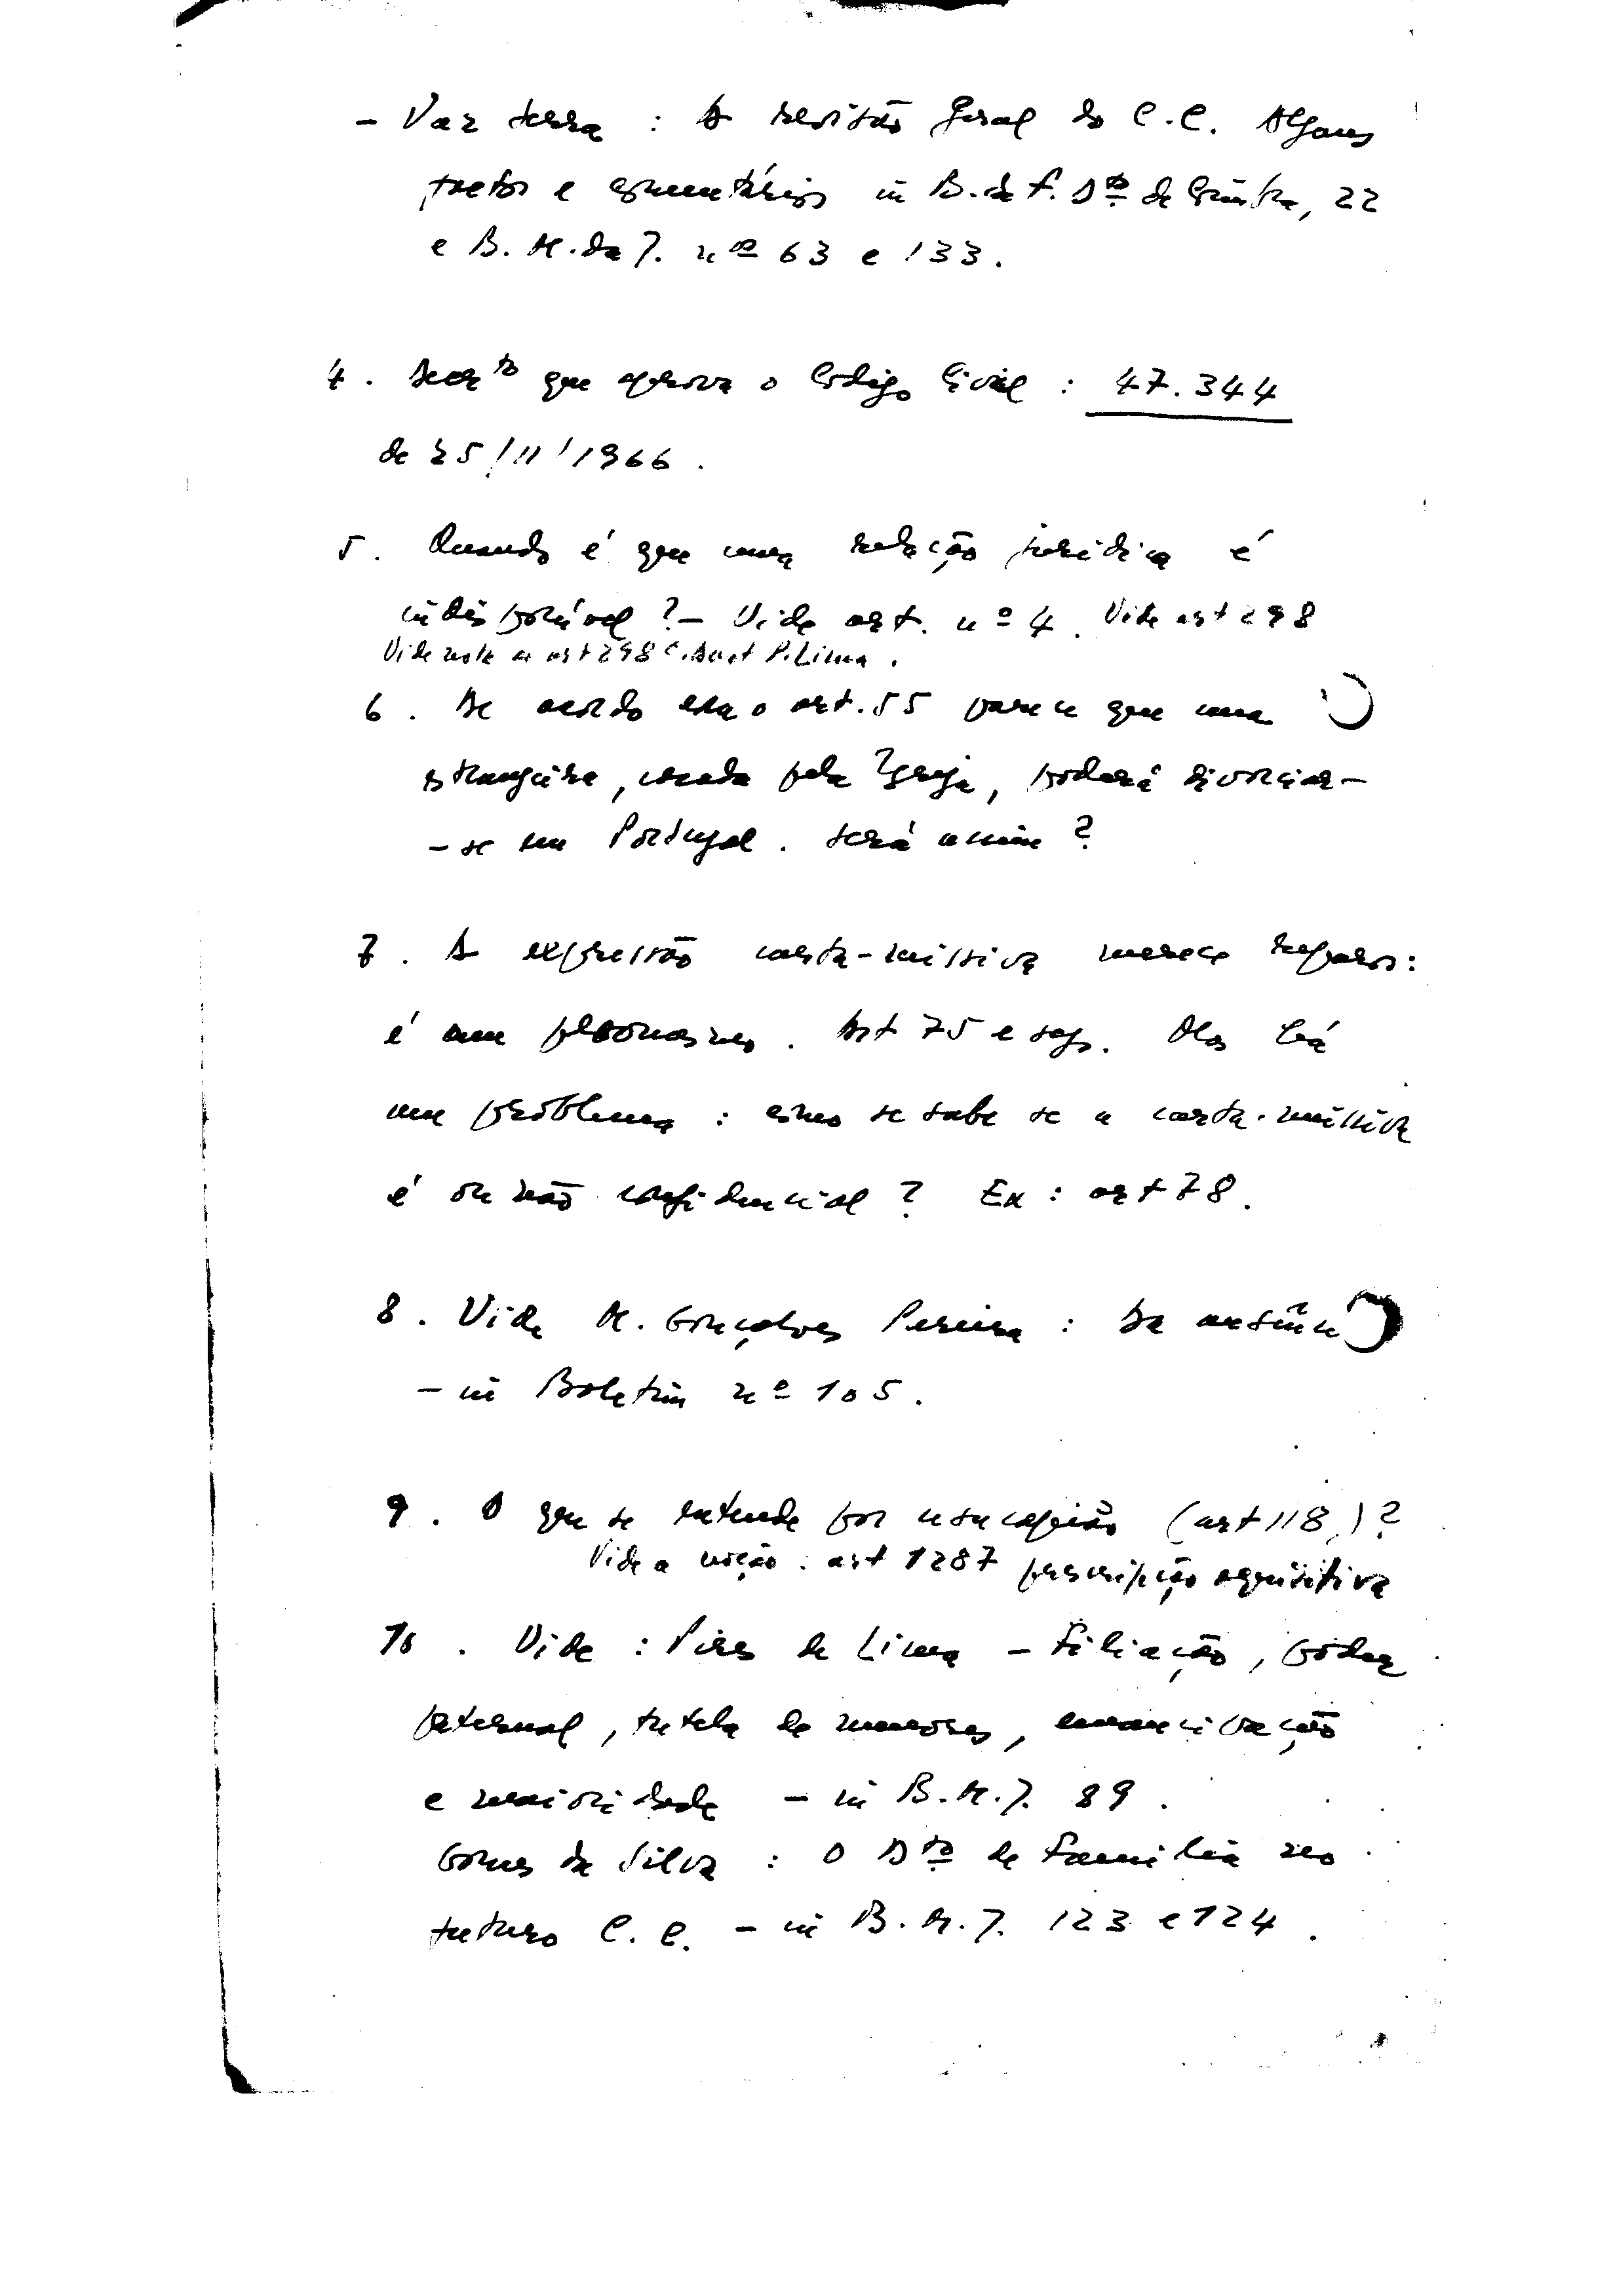 - Vaz Serra : A revisão geral do C.C. Alguns
factos e comentários in B. da F. Dtº de Coimbra, 22
e B. M. da J. nºs 63 e 133.
4. Decrtº que aprova o Código Civil : 47.344
de 25/11/1966.
5. Quando é que uma relação jurídica é
indisponível ? - Vide art. nº 4. Vide art 298
Vide nota ao art 298 C. P. Lima.
6. De acordo com o art. 55 parece que uma
estrangeira, casada pela Igreja, poderá divorciar-
-se em Portugal. Será assim ?
7. A expressão carta-missiva merece reparos:
é um pleonasmo. Art 75 e segs. Mas há
um problema : como se sabe se a carta-missiva
é ou não confidencial ? Ex : art 78.
8. Vide M. Gonçalves Pereira : Da ausência
- in Boletim nº 105.
9. O que se entende por usucapião (art 118) ?
Vide a noção : art 1287 prescripção aquisitiva
10. Vide : Pires de Lima - Filiação, poder
paternal, tutela de menores, emancipação
e maioridade - in B.M.J. 89.
Gomes da Silva : O Dtº de Família no
futuro C.C. - in B.M.J. 123 e 124.